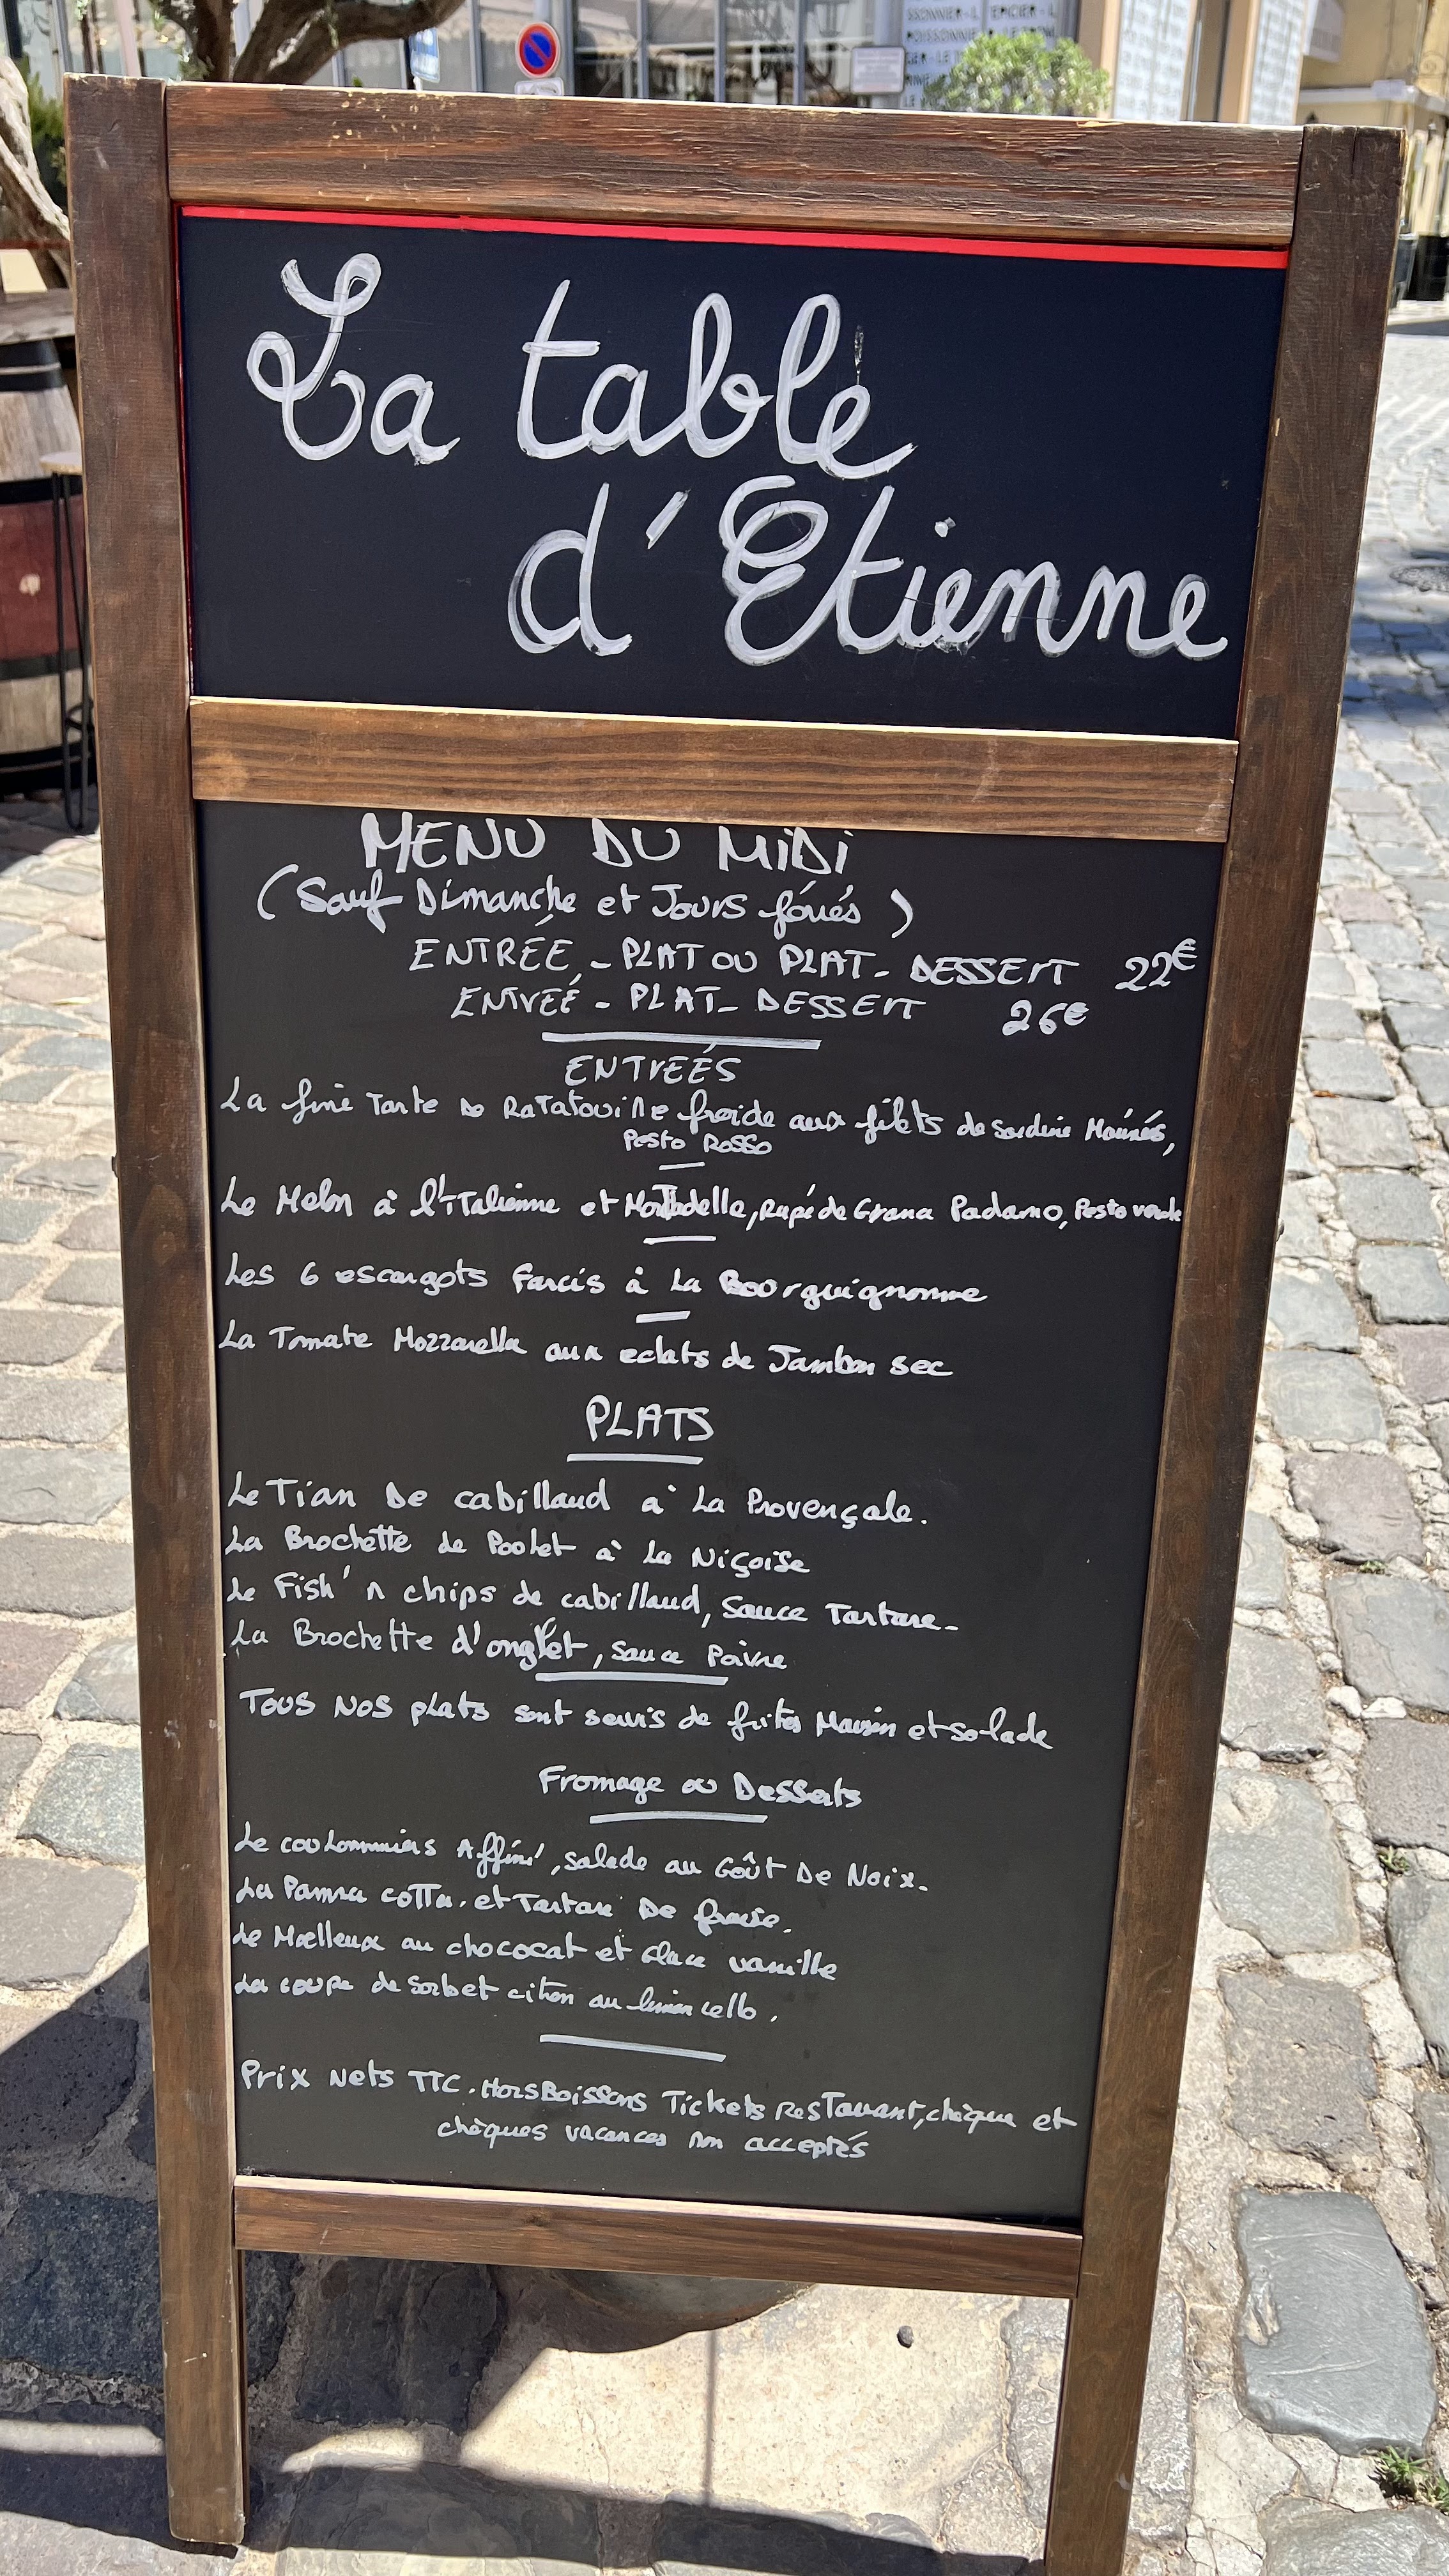 SSONNIER - L'EPICIER - L
POISSONNIE
GER - LE
La table
d'Etienne
MENU DU MIDI
(Sauf Dimanche et Jours fériés)
ENTRÉE - PLAT OU PLAT - DESSERT 22€
ENTREÉ - PLAT - DESSERT 26€
ENTREÉS
La fine Tarte De RaTaTouille froide aux filets de sardine Marinés,
Pesto Rosso
Le Melon à l'iTalienne et MorTadella, Rapé de Grana Padano, Pesto verde
Les 6 escargots farcis à La Bourguignonne
La Tomate Mozzarella aux eclats de Jambon sec
PLATS
Le Tian De cabillaud à La Provençale.
La Brochette de Poulet à La Niçoise
Le Fish'n chips de cabillaud, Sauce Tartare -
La Brochette d'onglet, sauce Poivre
Tous nos plats sont servis de frites Maison et salade
Fromage ou Desserts
Le coulommiers Affiné, salade au Goût De Noix -
La Panna coTTa et Tartare De fraise.
Le Mœlleux au chococat et Glace vanille
La coupe de Sorbet citron au limoncello.
Prix Nets TTC. Hors Boissons Tickets ResTaurant, chèque et
chèques vacances non acceptés